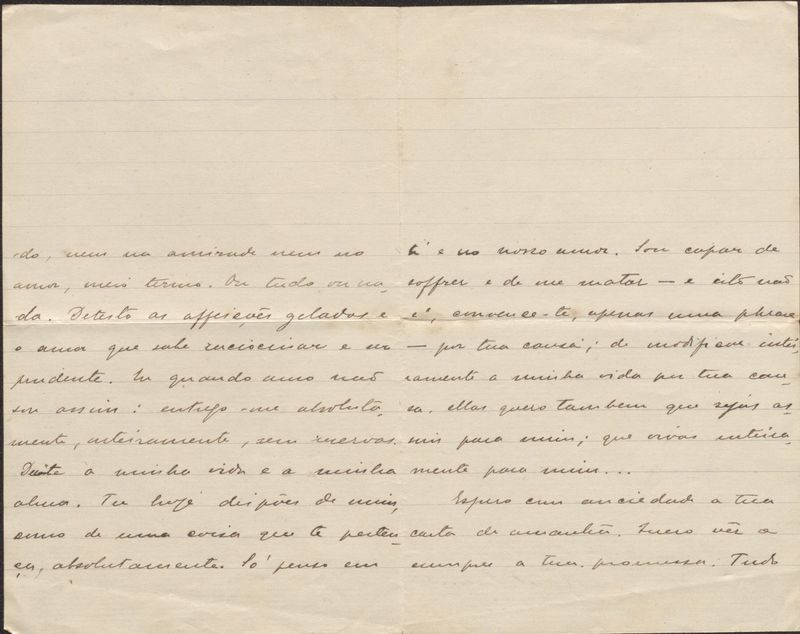 do, nem na amizade nem no
amor, meio termo. Ou tudo ou na-
da. Detesto as affeições geladas e
o amor que sabe raciocinar e ser
prudente. Eu quando amo não
sou assim: entrego-me absoluta-
mente, inteiramente, sem reservas.
Dei-te a minha vida e a minha
alma. Tu hoje dispões de mim,
como de uma coisa que te perten-
ça, absolutamente. Só penso em
ti e no nosso amor. Sou capaz de
soffrer e de me matar — e isto não
é, convence-te, apenas uma phrase
— por tua causa; de modificar intei-
ramente a minha vida por tua cau-
sa. Mas quero tambem que sejas as-
sim para mim; que vivas inteira-
mente para mim...
Espero com anciedade a tua
carta de amanhã. Quero vêr se
cumpres a tua promessa. Tudo